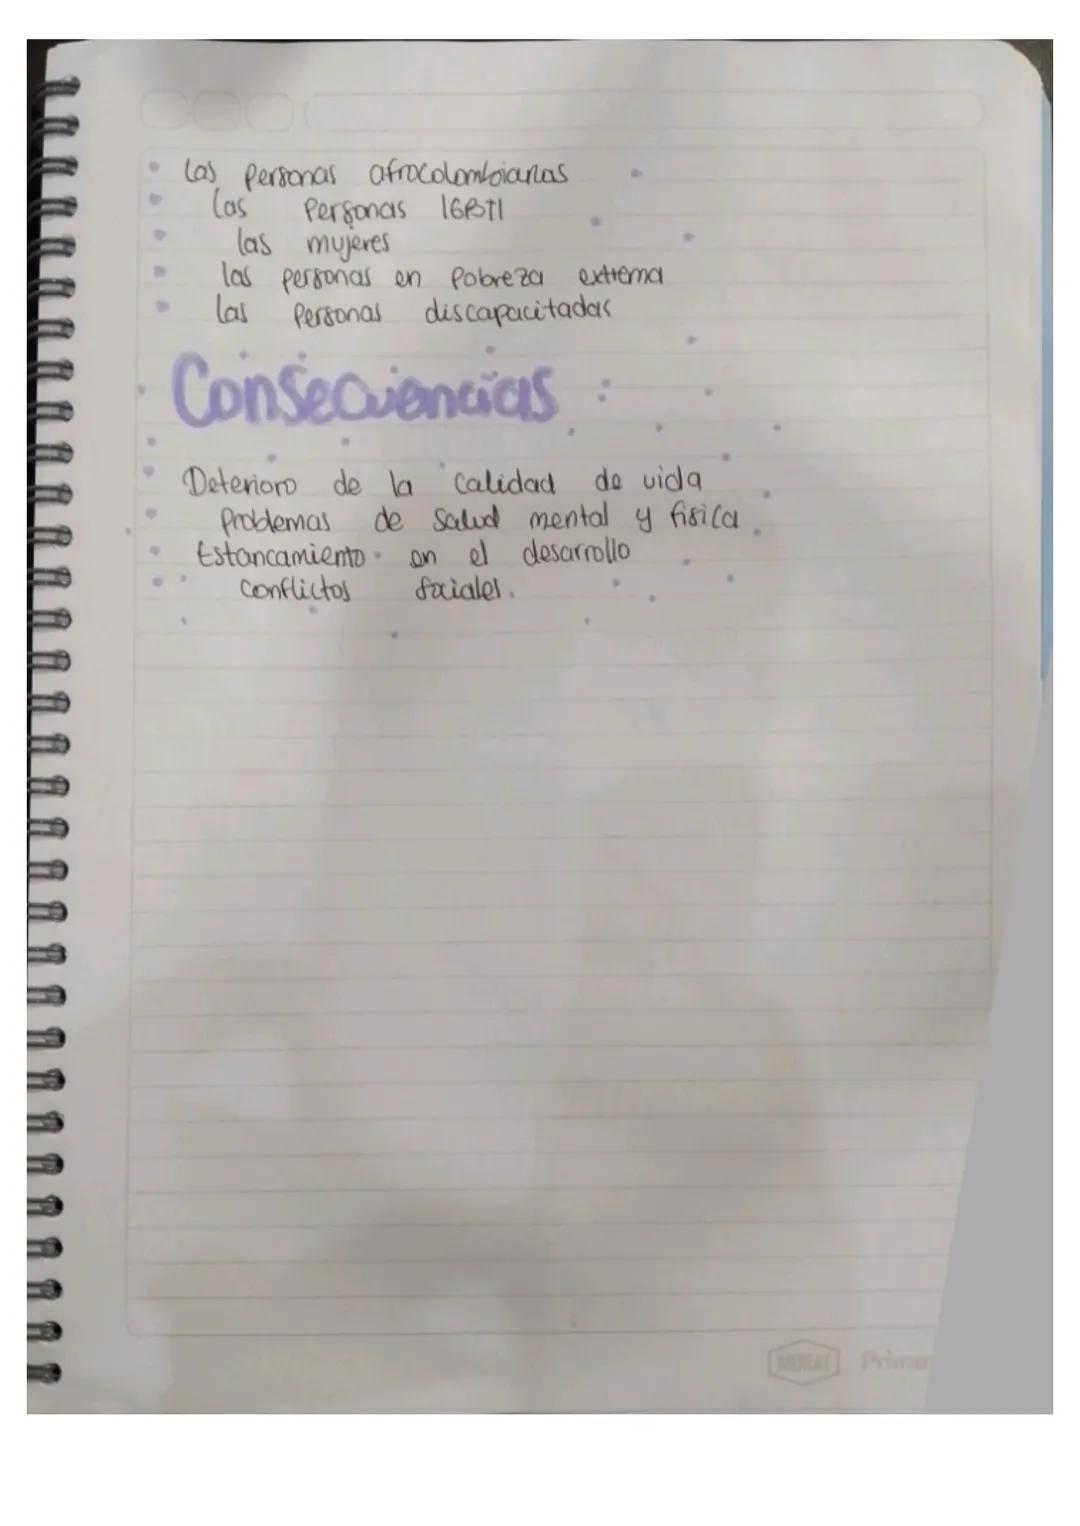 Las personas afrocolombianas
Las Personas LGBTI
las mujeres
las personas en Pobreza extrema
Las Personas discapacitadas
Consecuencias :
Deterioro de la calidad de vida
Problemas de Salud mental y fisica
Estancamiento en el desarrollo
Conflictos sociales.
NORMA